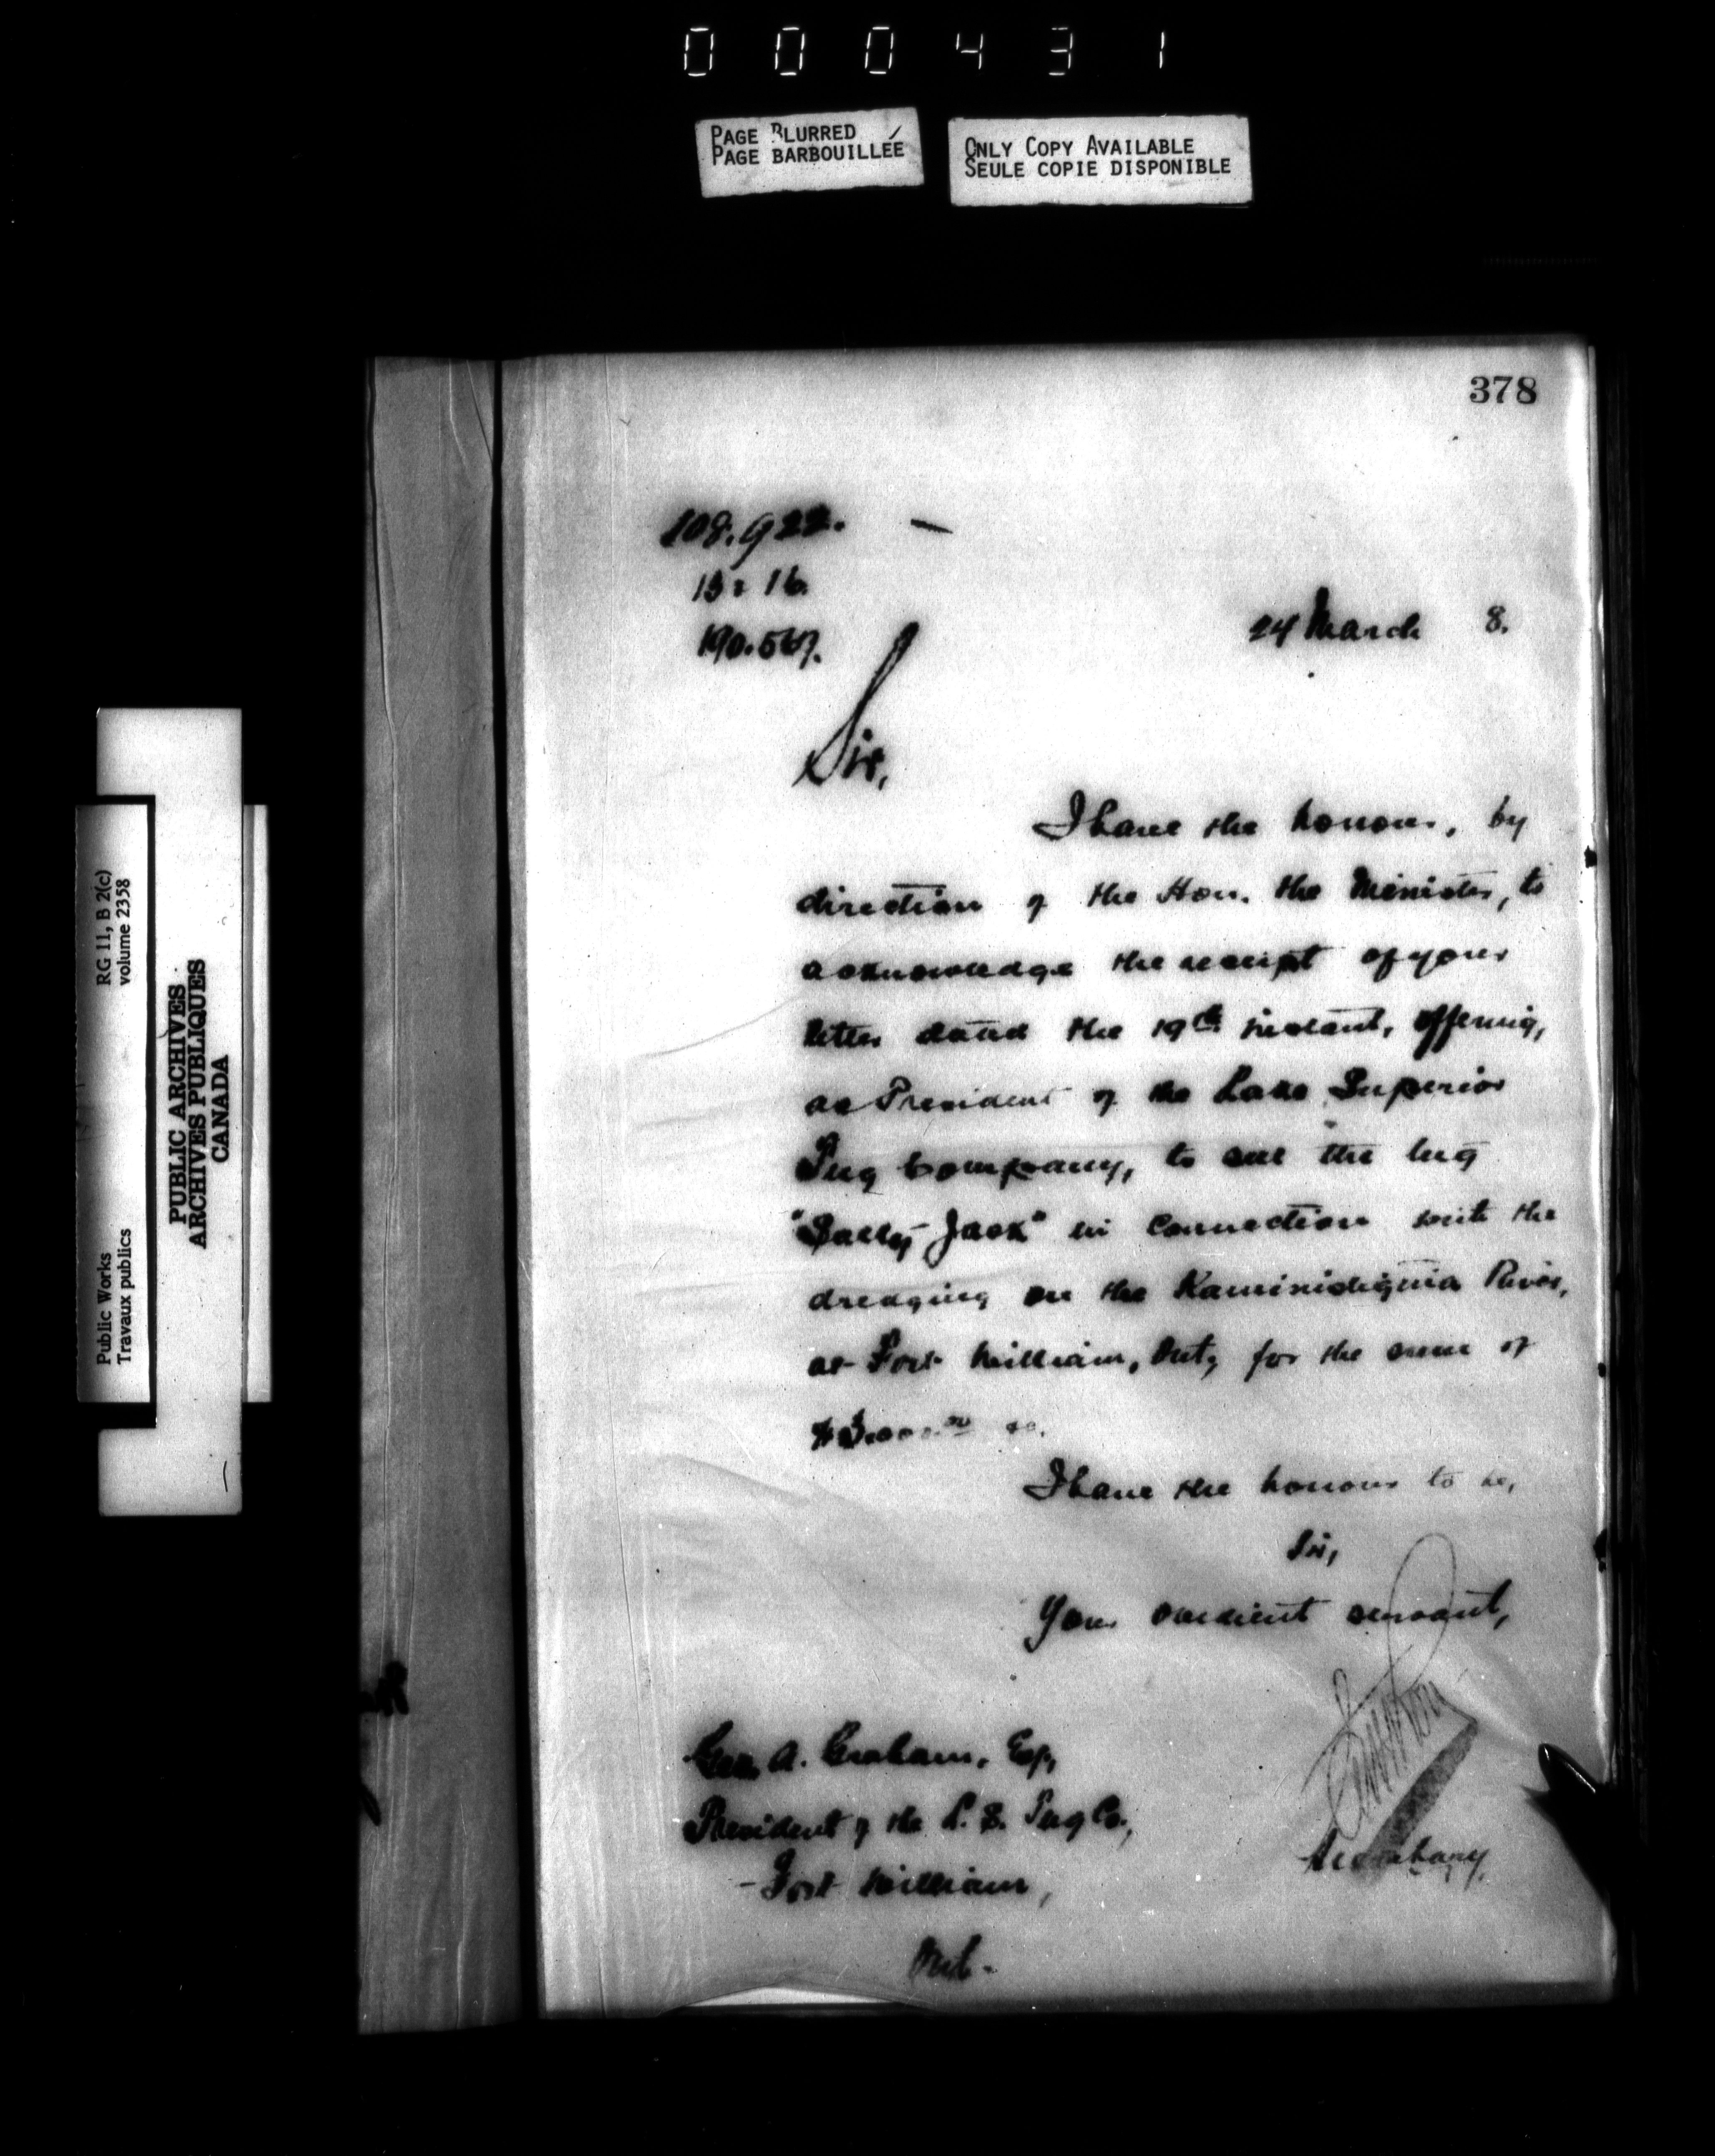 000431
PAGE BLURRED
PAGE BARBOUILLÉE
ONLY COPY AVAILABLE
SEULE COPIE DISPONIBLE
378
108.922.
15 & 16.
190.567.
24 March 8.
Sir,
I have the honour, by
direction of the Hon. the Minister, to
acknowledge the receipt of your
letter dated the 19th instant, offering,
as President of the Lake Superior
Tug Company, to the tug
"Salty Jack" in connection with the
dredging on the Kaministiquia River,
at Fort William, Ont, for the sum of
$3.000.00
I have the honour to be,
Sir,
Your obedient servant,
Secretary.
Geo. A. Graham, Esq,
President of the L. S. Tug Co.,
- Fort William,
Ont.
RG 11, B 2(c)
volume 2358
Public Works
Travaux publics
PUBLIC ARCHIVES
ARCHIVES PUBLIQUES
CANADA